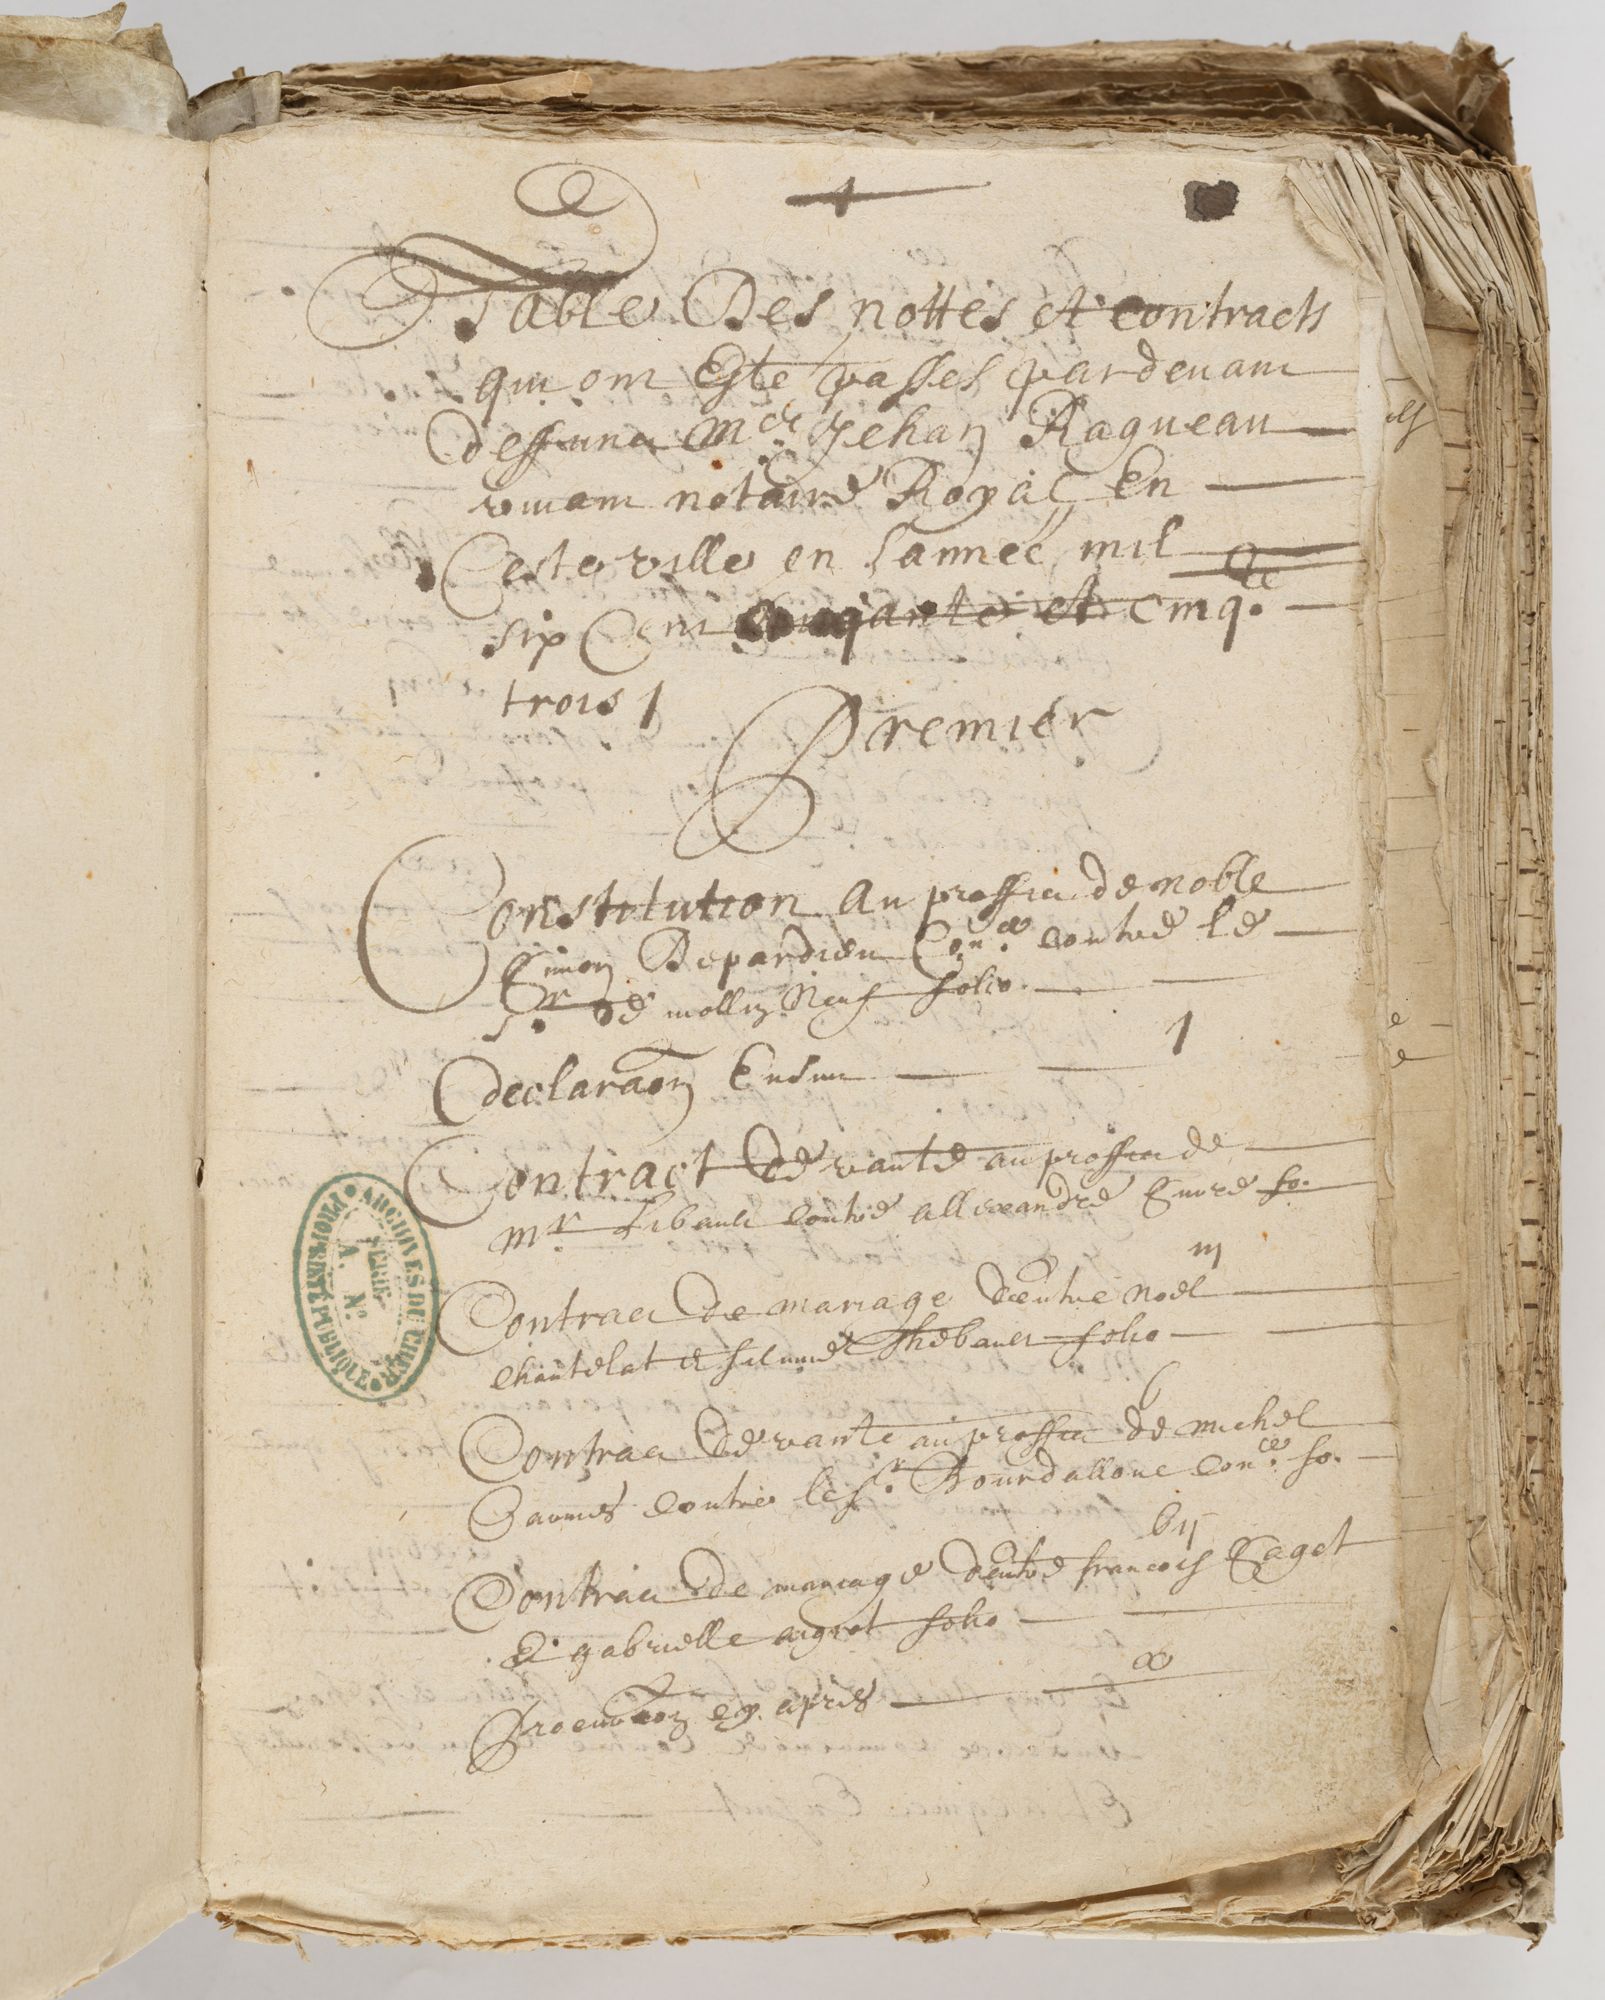 1
Table Des nottes et contracts
qui ont Este passes pardevant
deffunct Me Jehan Ragueau
vivant notaire Royal En
Ceste ville en l'année mil
six Cent cinqante et cinq
trois
Premier
Constitution au proffict de noble
Simon Depardieu Conr contre le
Sr de mollin Neuf folio
1
declaraon Ensuit
Contract de vante au proffict de
Mr Libault contre allexandre fo.
iij
Contract de mariage d'entre Noel
Chantelat et Thebault folio
6
Contract de vante au proffict de michel
contre le Sr Bourdalloue fo.
bij
Contract de mariage d'entre francois Caget
et gabrielle aigret folio
x
Procuraon cy apres
ARCHIVES DU CHER
DEPOT PUBLIC
SERIE
A. No